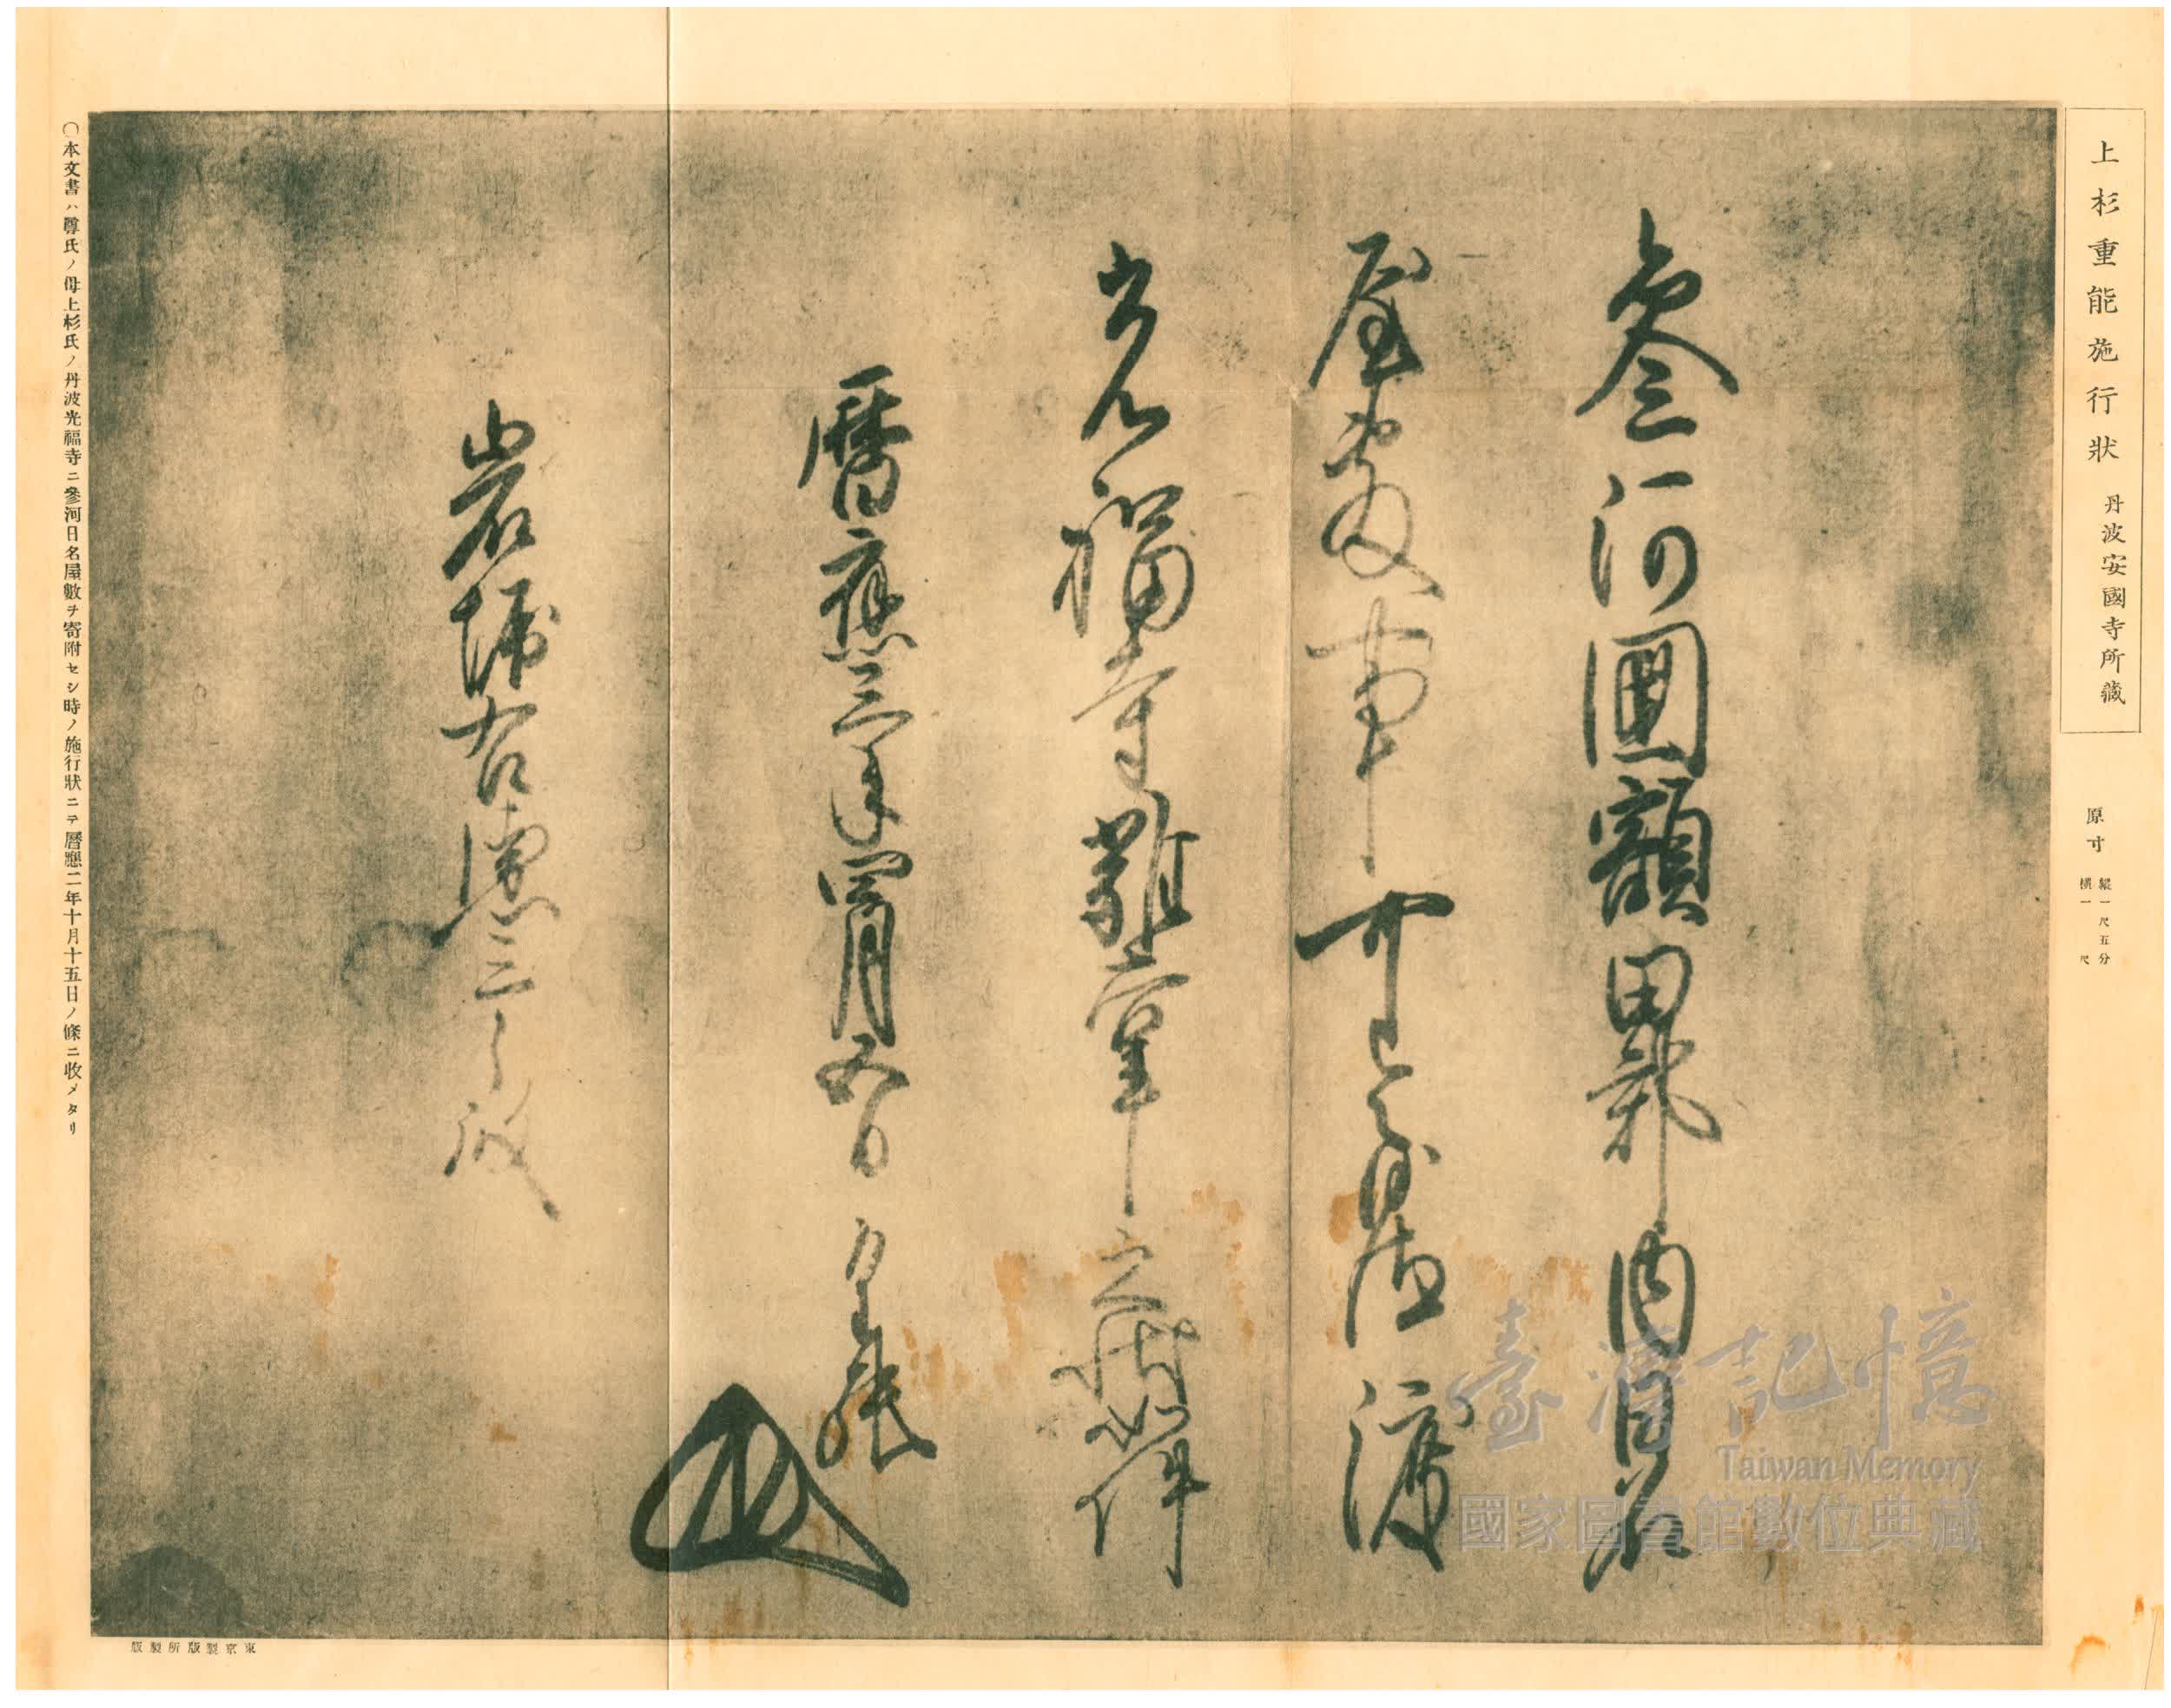 上杉重能施行狀 丹波安國寺所藏
原寸 縱一尺五分
橫一尺
參河國額田郡内日名
屋敷事可被沙汰渡
光福寺雜掌之狀如件
曆應三年四月五日 重能
岩堀右 三 殿
〇本文書ハ尊氏ノ母上杉氏ノ丹波光福寺ニ參河日名屋敷ヲ寄附セシ時ノ施行狀ニテ曆應二年十月十五日ノ條ニ收メタリ
東京製版所製版
臺灣記憶
Taiwan Memory
國家圖書館數位典藏